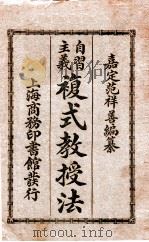 嘉定范祥善編纂
自習主義
複式教授法
上海商務印書館發行
www.youbook.com